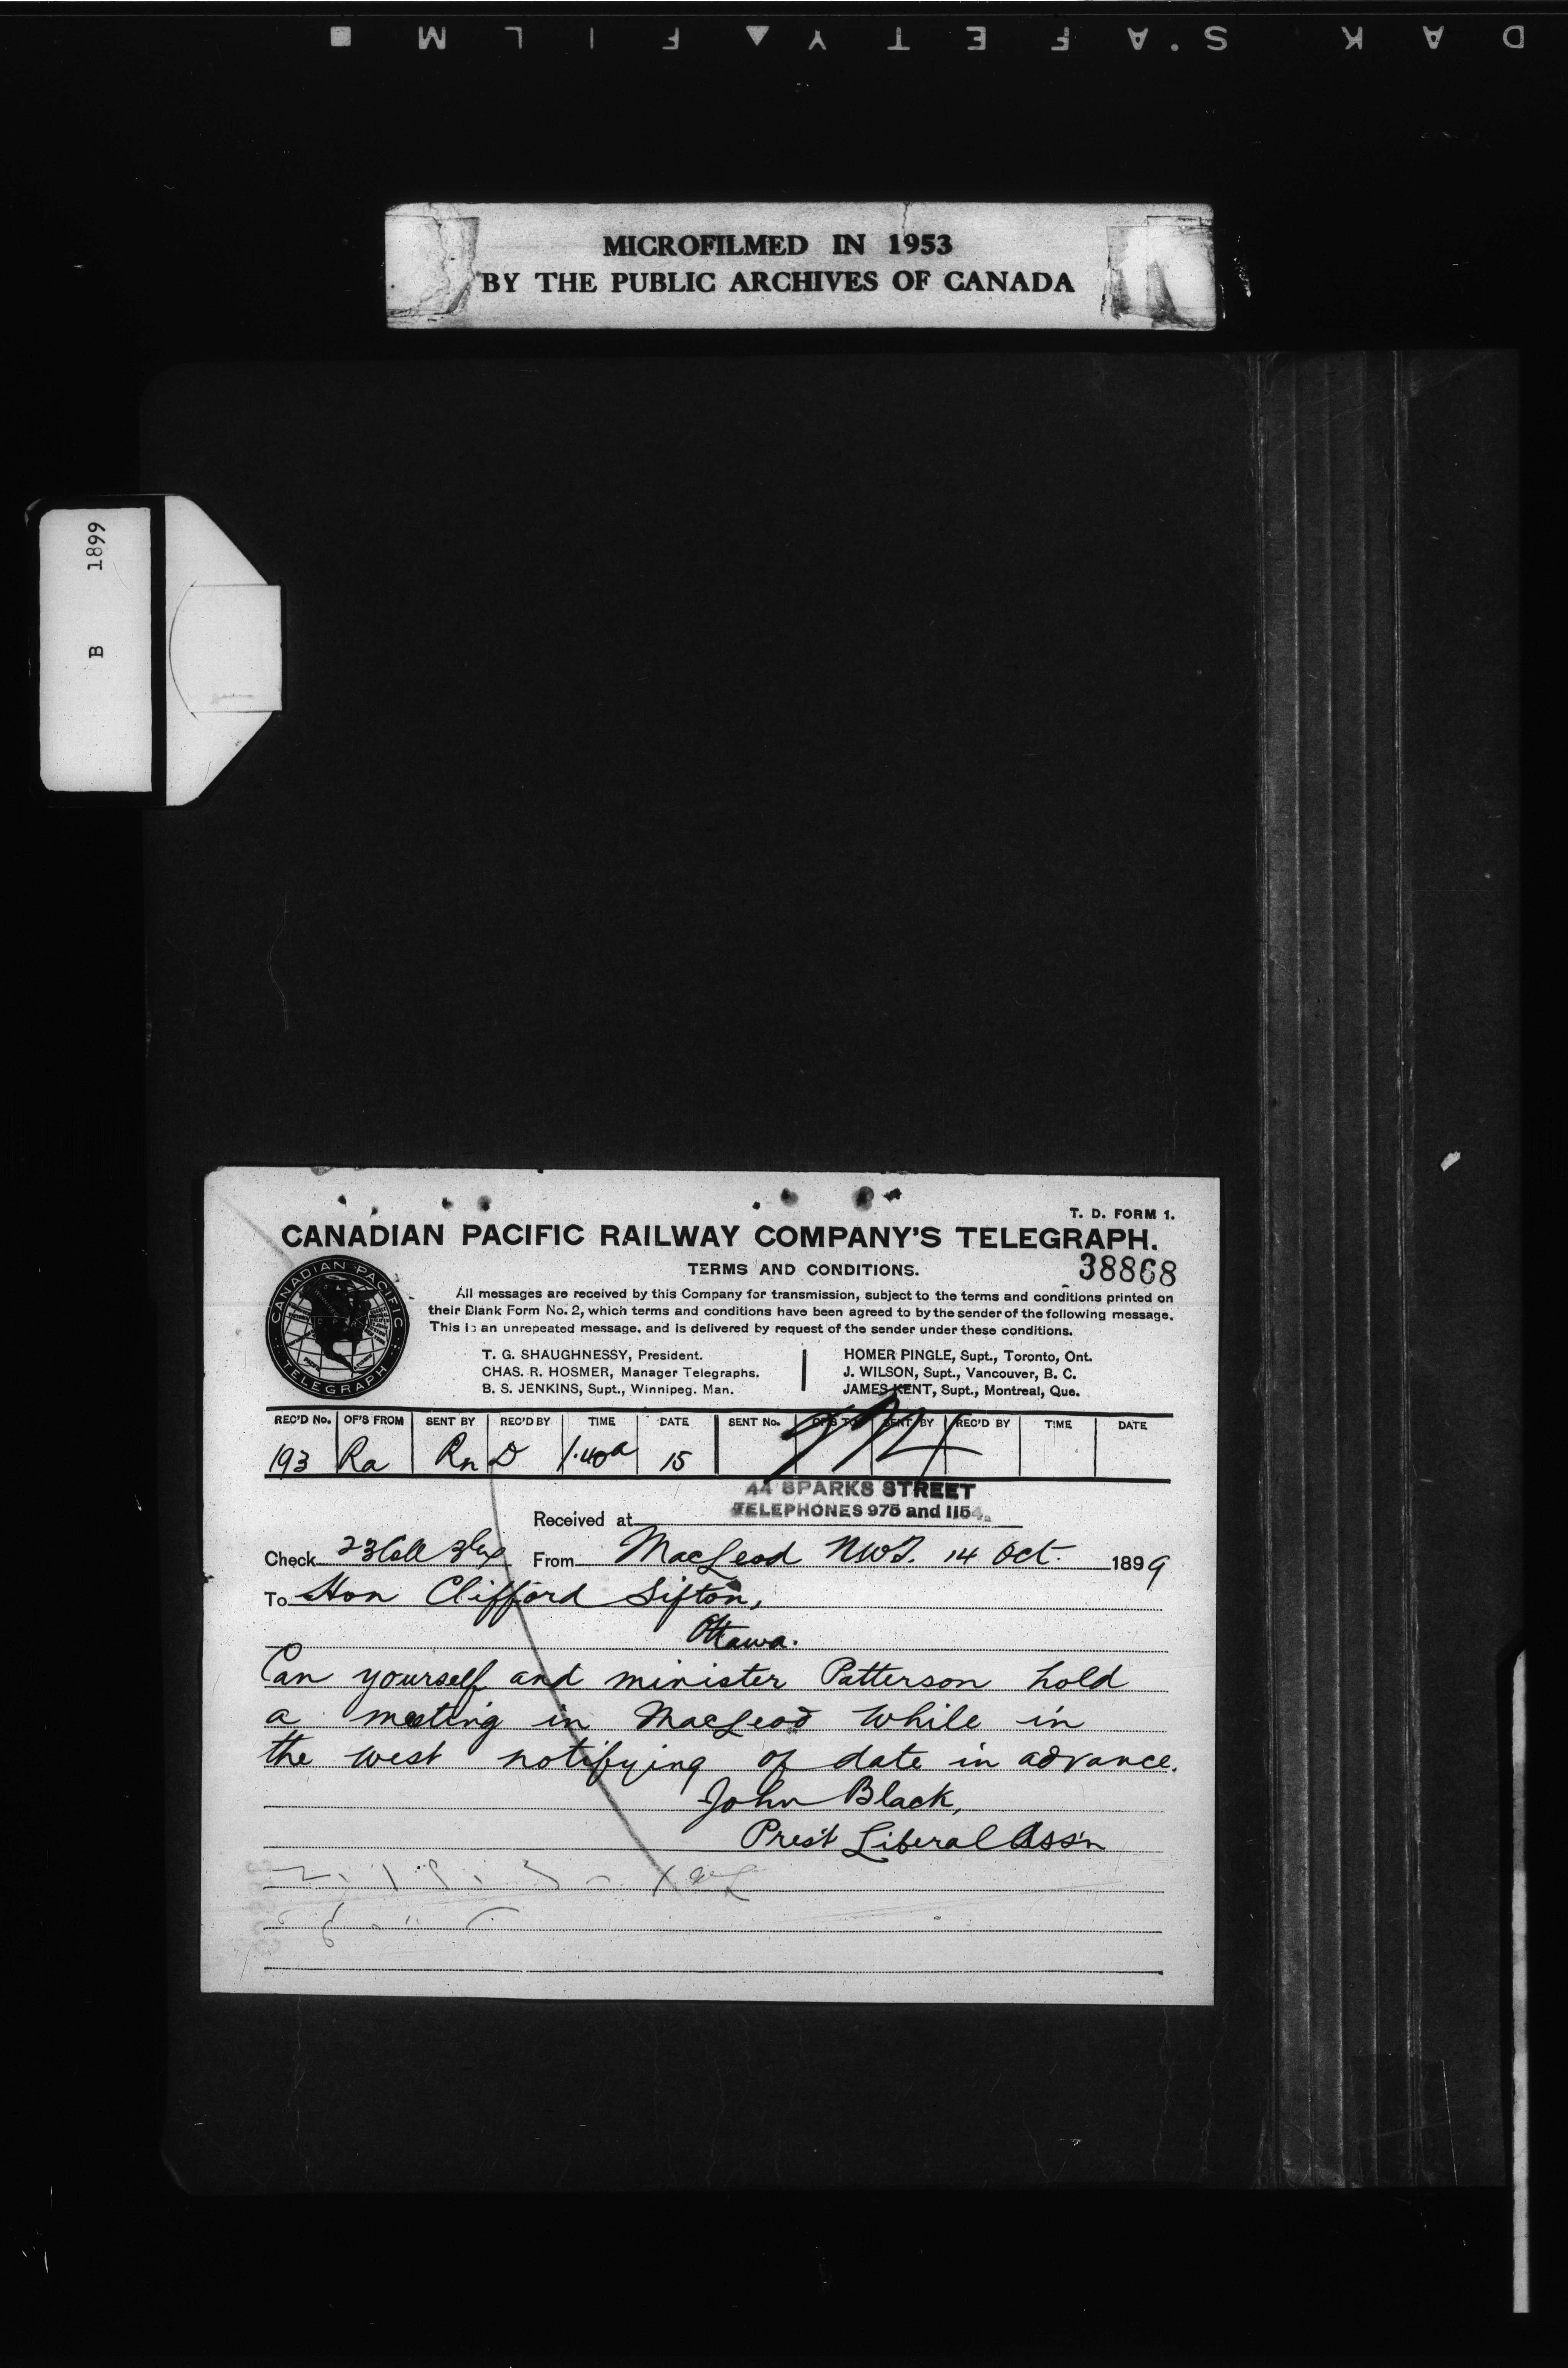 MICROFILMED IN 1953
BY THE PUBLIC ARCHIVES OF CANADA
B 1899
T. D. FORM 1.
CANADIAN PACIFIC RAILWAY COMPANY'S TELEGRAPH.
TERMS AND CONDITIONS.
38868
CANADIAN PACIFIC
TELEGRAPH
All messages are received by this Company for transmission, subject to the terms and conditions printed on
their Blank Form No. 2, which terms and conditions have been agreed to by the sender of the following message.
This is an unrepeated message, and is delivered by request of the sender under these conditions.
T. G. SHAUGHNESSY, President.
CHAS. R. HOSMER, Manager Telegraphs.
B. S. JENKINS, Supt., Winnipeg. Man.
HOMER PINGLE, Supt., Toronto, Ont.
J. WILSON, Supt., Vancouver, B. C.
JAMES KENT, Supt., Montreal, Que.
REC'D No. OF'S FROM SENT BY REC'D BY TIME DATE SENT No. OF'S TO SENT BY REC'D BY TIME DATE
193 Ra Rn D 1.40a 15
44 SPARKS STREET
TELEPHONES 975 and 1154
Received at
Check 23 From MacLeod NWT. 14 Oct. 1899
To Hon Clifford Sifton,
Ottawa.
Can yourself and minister Patterson hold
a meeting in MacLeod while in
the west notifying of date in advance.
John Black,
Prest Liberal Ass'n